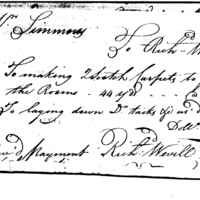 Mr Simmons
To Richd W
To making 2 Scotch Carpets to
the Rooms - 44 yd
To laying down Do tacks &
Payment Richd Wevill